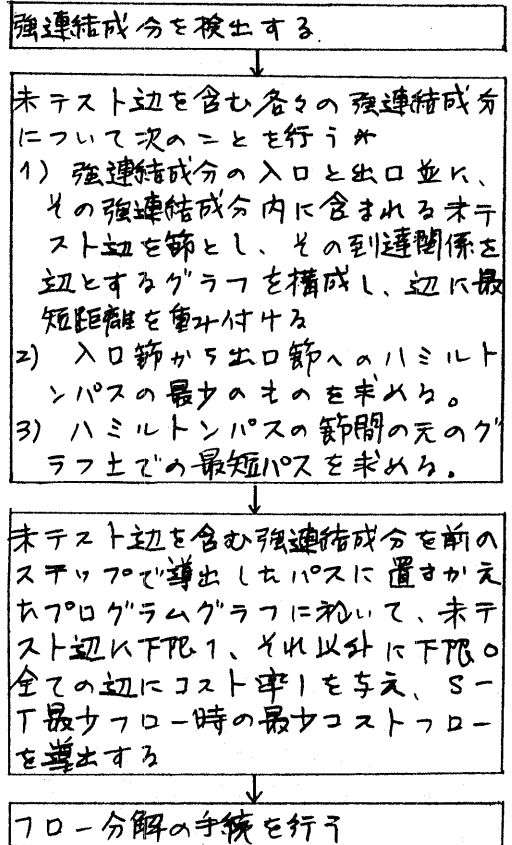 強連結成分を検出する.
未テスト辺を含む各々の強連結成分
について次のことを行うべ
1) 強連結成分の入口と出口並に、
その強連結成分内に含まれる未テ
スト辺を節とし、その到達関係を
辺とするグラフを構成し、辺に最
短距離を重み付ける
2) 入口節から出口節へのハミルト
ンパスの最少のものを求める。
3) ハミルトンパスの節間の元のグ
ラフ上での最短パスを求める。
未テスト辺を含む強連結成分を前の
ステップで導出したパスに置きかえ
たプログラムグラフに於いて、未テ
スト辺に下限1、それ以外に下限0
全ての辺にコスト率1を与え、S-
T最少フロー時の最少コストフロー
を導出する
フロー分解の手続を行う